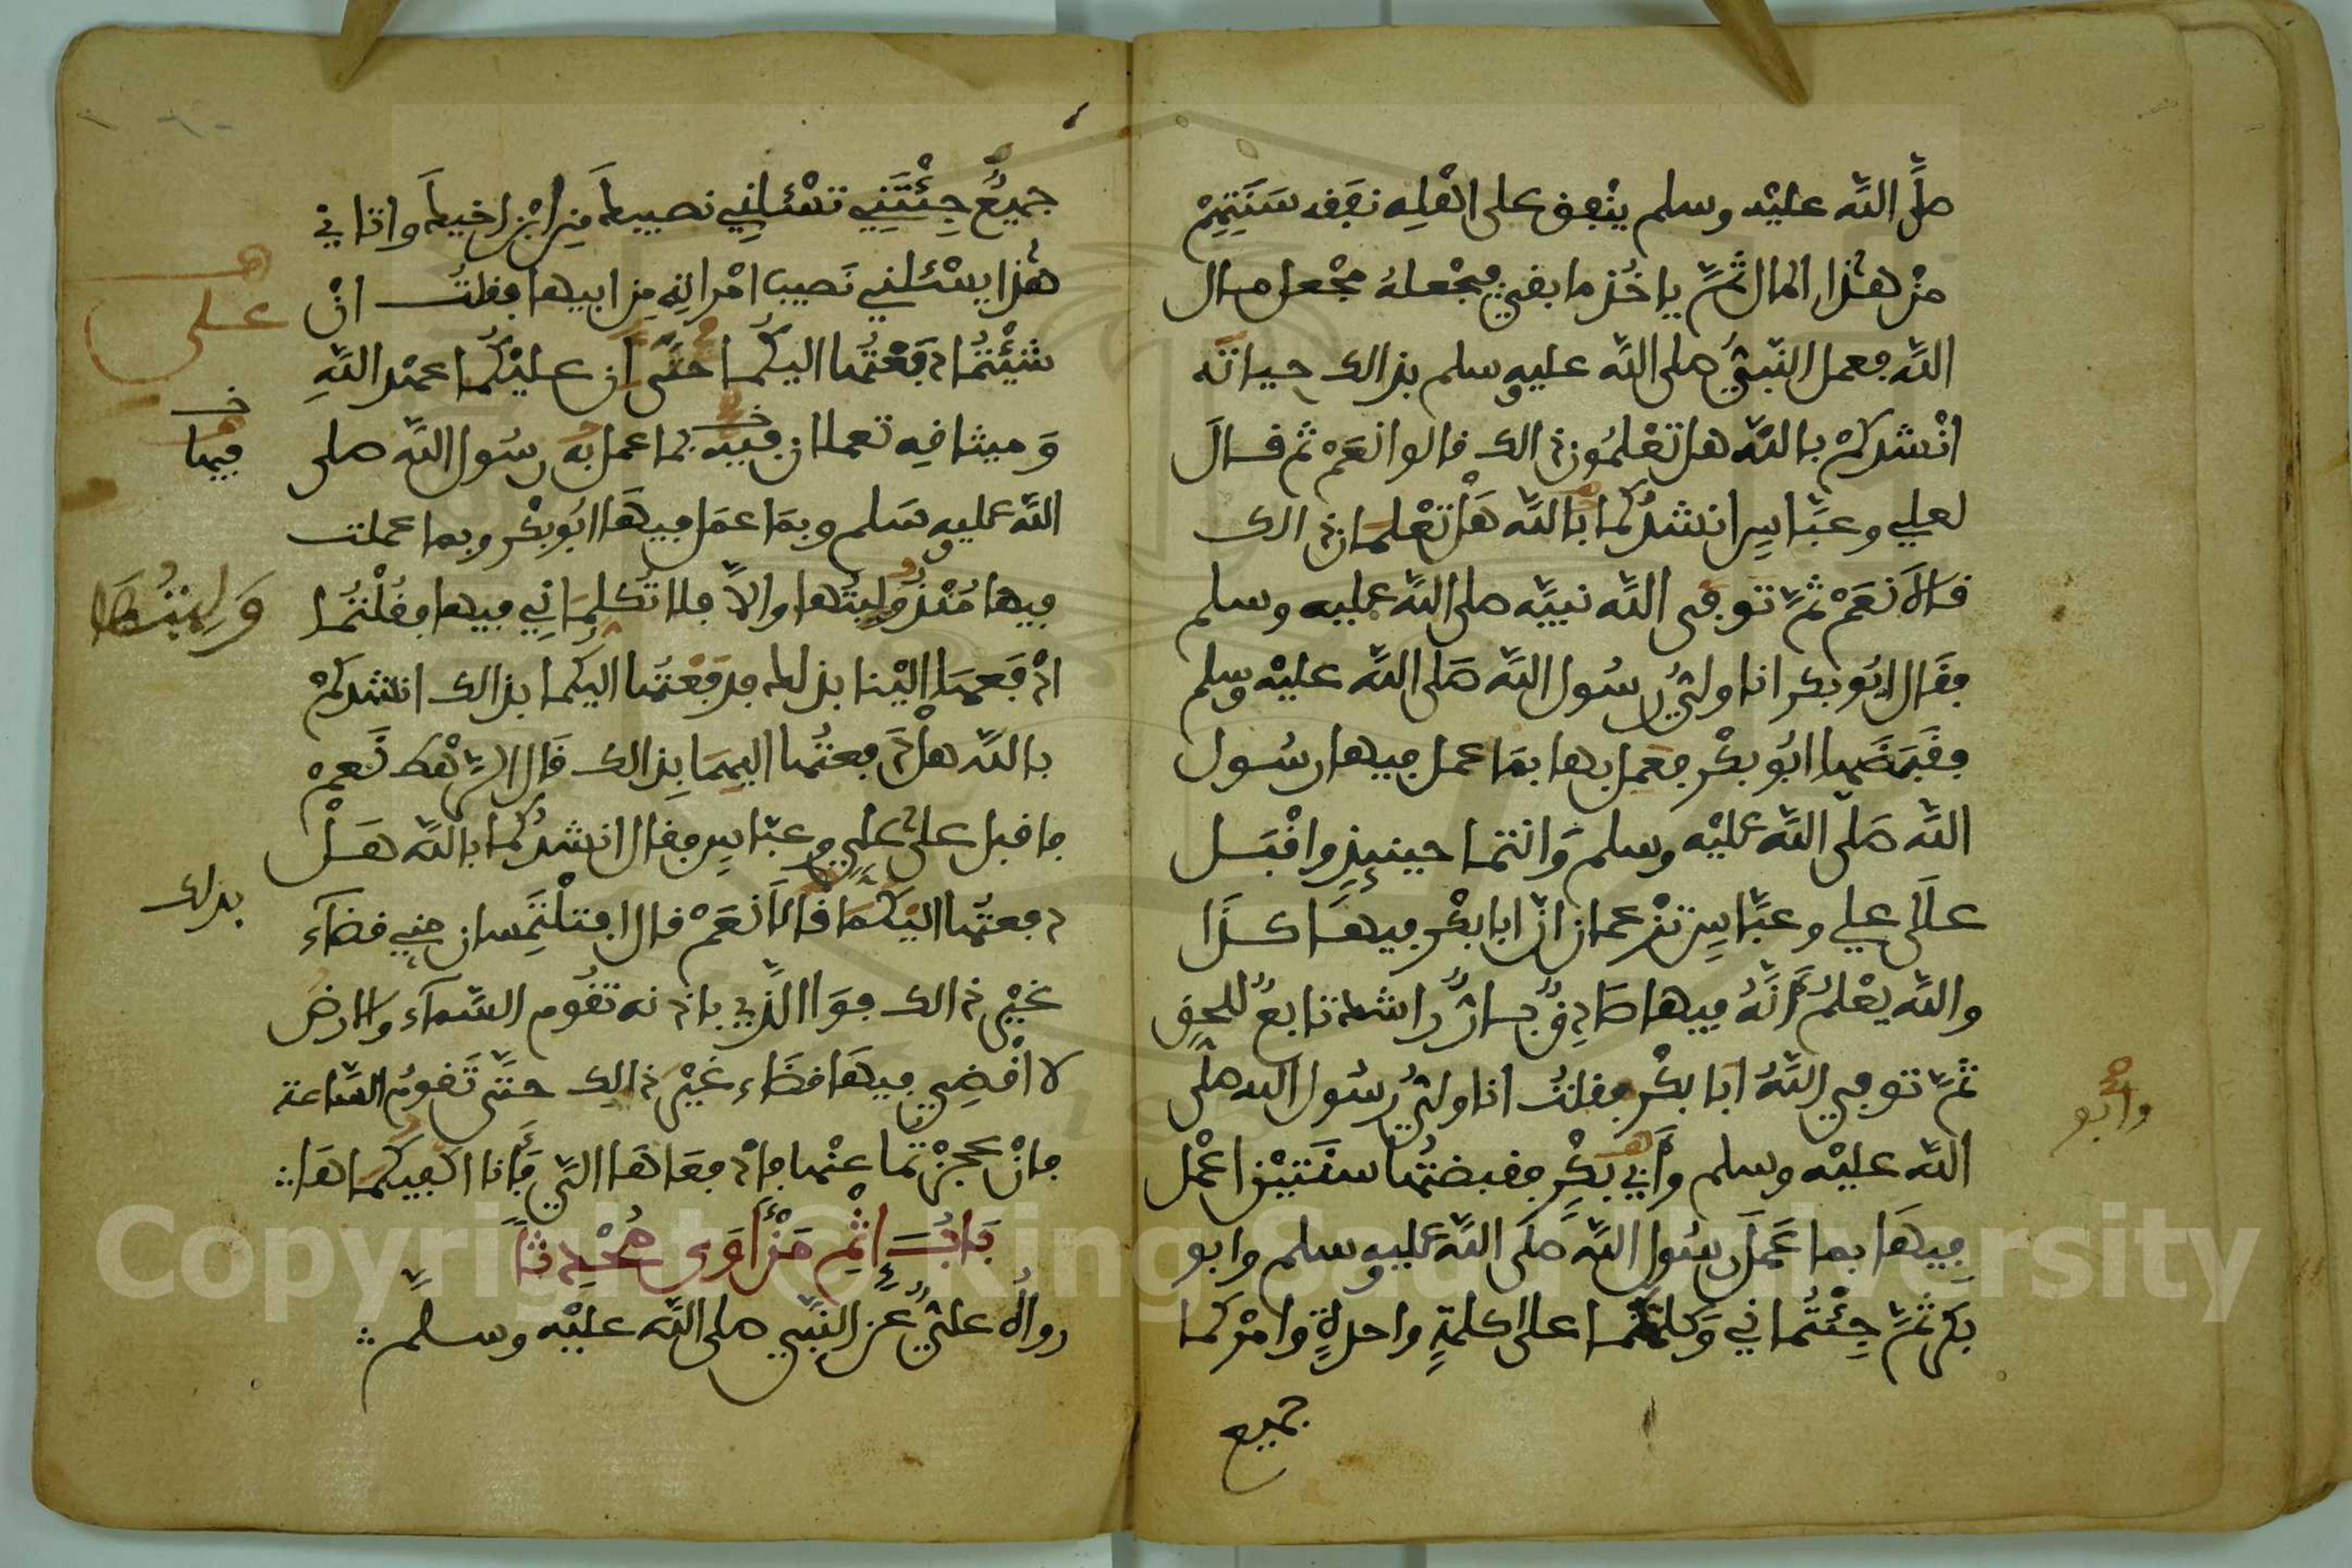 صلَّى اللَّه عليْه وسلم ينْفق على اهْلِه نفَقه سَنَتِهِمْ
مِنْ هٰذا المال ثمَّ ياخُذ ما بقي فيجْعلهُ مجْعل مال
اللَّه فعمل النَّبيُّ صلى اللَّه عليه وسلم بذالك حياتَه
انْشدكمْ باللَّه هل تعْلمُون ذالك قالوا نعَمْ ثم قال
لعلي وعبَّاسٍ انشدُكما باللَّه هَلْ تعْلمَان ذالك
قالاَ نعَمْ ثمَّ توفى اللَّه نبيَّه صلى اللَّه عليه وسلم
فقَال ابُو بكر انا وليُّ رسُول اللَّه صَلى اللَّه عليْه وسلم
فقَبَضَها ابُو بكْر فعمل بها بمَا عمل فيها رسُول
اللَّه صَلَّى اللَّه عليْه وسلم وَانتما حينيذٍ واقْبَل
علَى علي وعبَّاسٍ تزْعمان انَّ ابا بكْر فيهَا كذَا
واللَّه يعْلمُ أنَّهُ فيها صَادِقٌ بارٌّ راشد تابعٌ للحق
ثمَّ توفي اللَّهُ ابَا بكْر فقلتُ انا وليُّ رسُول الله صلَّى
وابُو
اللَّه عليْه وسلم وَأبي بَكْرٍ فقبضتُها سنَتيْن اعْمل
فِيهَا بما عَمَلَ رسُول اللَّه صَلَى اللَّه عليه وسلم وابو
بَكر ثمَّ جِئْتُما ني وَكلمتكما على كلمةٍ واحدةٍ وامْركما
جميع
جميعٌ جِئْتَنِي تسْئلنِي نصيبكَ مِن ابْن اخيكَ واتاني
هٰذا يسْئلني نَصيب امْراته مِن ابيها فقلتُ انْ
شئْتُما دفَعْتُها اليكُما حتَّى أن عليْكُما عهْد اللَّهِ
على
وَميثاقه تعملان فيه بما عمل به رسُول اللَّه صلى
فيها
اللَّه عليه وسَلم وبمَا عمَل فيهَا ابُو بكْر وبما عملت
فيها مُنْذ وَلِيتُها والاَّ فلا تُكلمَانِي فيها فقُلْتُما
وَلِيتُهَا
ادْفَعهَا اليْنا بذلك فدفَعْتُها اليكما بذالك انشدكمْ
باللَّه هلْ دَفعتُها اليهِمَا بِذالك قَال الرَّهْط نَعمْ
فاقبل على علِي وعبَّاسٍ فقال انشدُكما باللَّه هَلْ
دفعتُها اليْكمَا قالاَ نعَمْ قال افتلْتَمِسان مني قضآء
بذلك
غيْر ذالك فوَاالَّذي باذنه تقُوم السَّمآء والارضُ
لا اقْضِي فيهَا قضَاء غيْر ذالِك حتَّى تَقومُ السَّاعة
فانْ عجزْتما عنْها فادْفعَاهَا اليَّ فَانا اكفيكمَاهَا
بَابُ اثْمِ مَنْ أَوَى مُحْدِثاً
رواهُ عليٌّ عن النَّبي صلى اللَّه عليْه وسلمَّ
Copyright © King Saud University